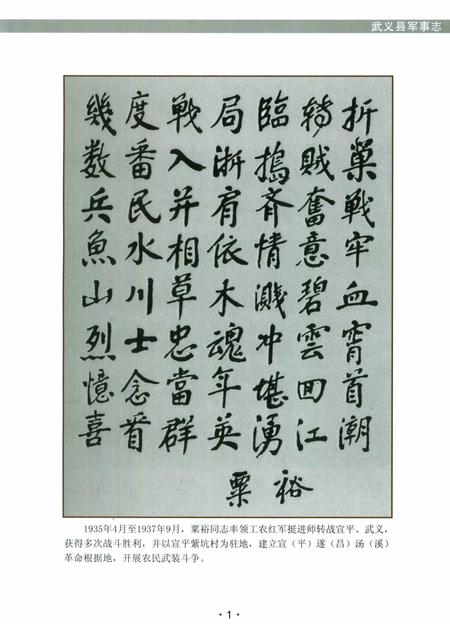 武义县军事志
幾度戰局臨转折
数番入浙搗贼巢
兵民并肩齐奮戰
魚水相依情意牢
山川草木溅碧血
烈士忠魂冲雲宵
憶念當年堪回首
喜看群英湧江潮
粟裕
1935年4月至1937年9月，粟裕同志率领工农红军挺进师转战宣平、武义，
获得多次战斗胜利，并以宣平紫坑村为驻地，建立宣（平）遂（昌）汤（溪）
革命根据地，开展农民武装斗争。
·1·